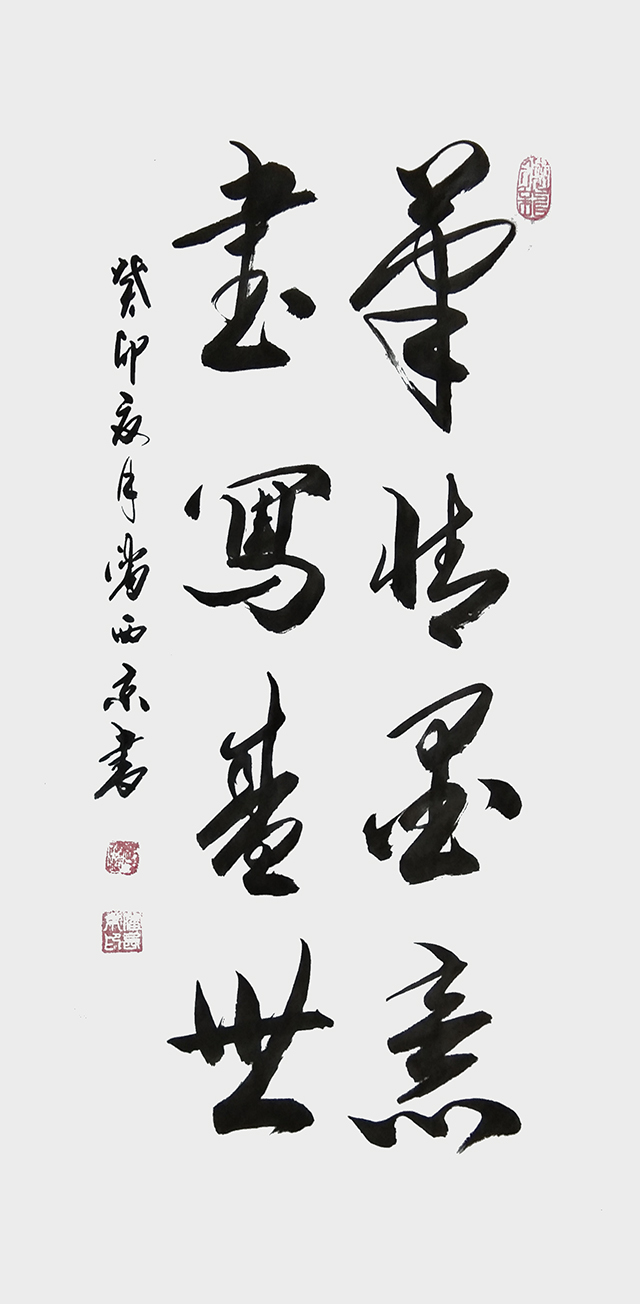 筆情墨意
書寫盛世
癸卯夏月西京書